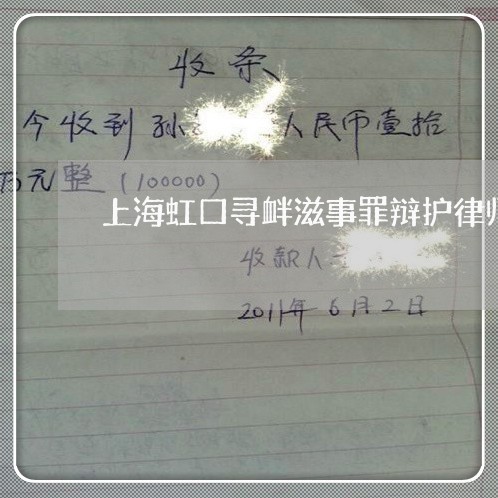 收条
今收到孙 人民币壹拾
万元整(100000)
上海虹口寻衅滋事罪辩护律
收款人
2011年6月2日